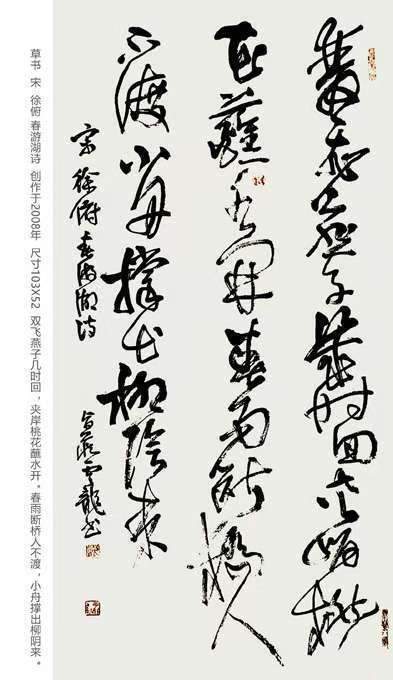 雙飛燕子幾時回夾岸桃
花蘸水開春雨斷橋人
不渡小舟撐出柳陰來
宋徐俯春游湖诗
云龍书
草书 宋 徐俯 春游湖诗 创作于2008年 尺寸103X52 双飞燕子几时回，夹岸桃花蘸水开。春雨断桥人不渡，小舟撑出柳阴来。